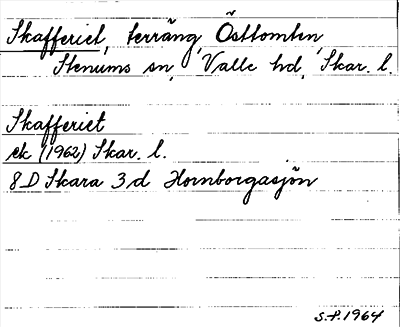 Skafferiet, terräng Östtomten
Stenums sn, Valle hd, Skar. l.
Skafferiet
ek (1962) Skar. l.
8D Skara 3d Hornborgasjön
S.F. 1964